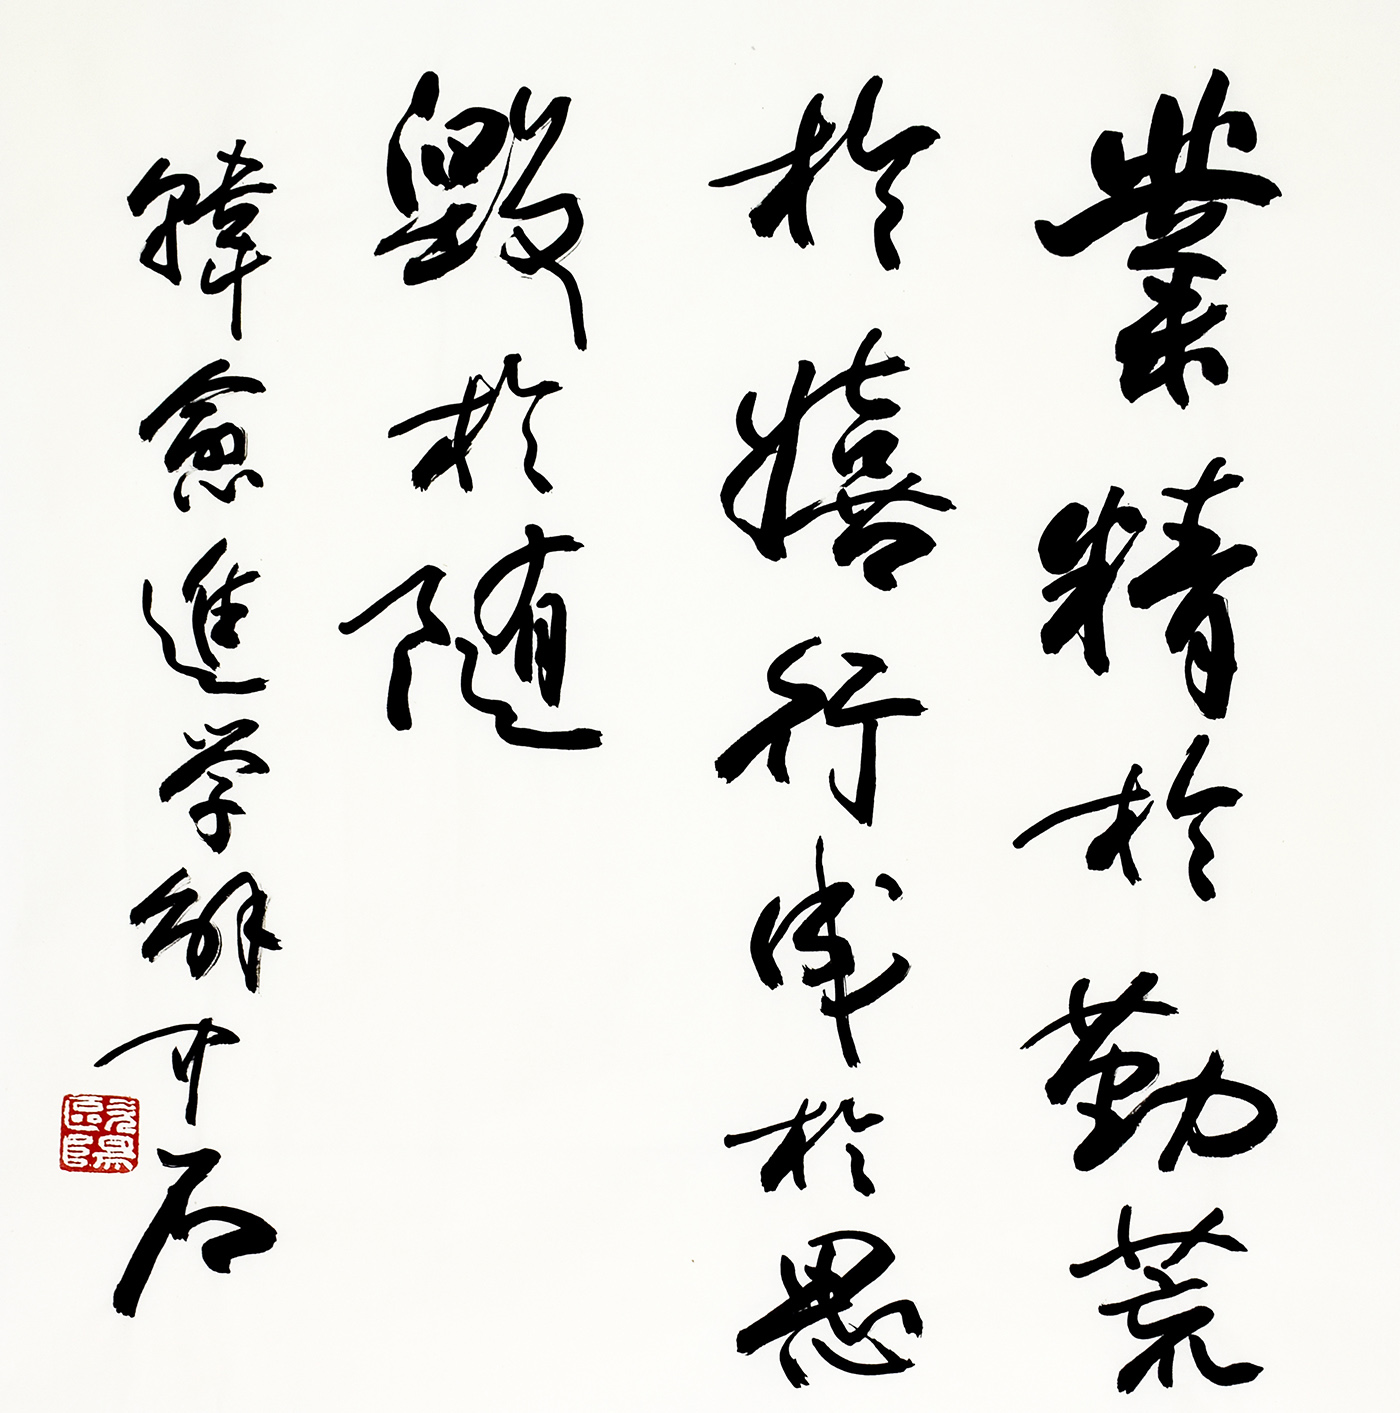 業精於勤荒
於嬉行成於思
毀於随
韓愈進学解介石